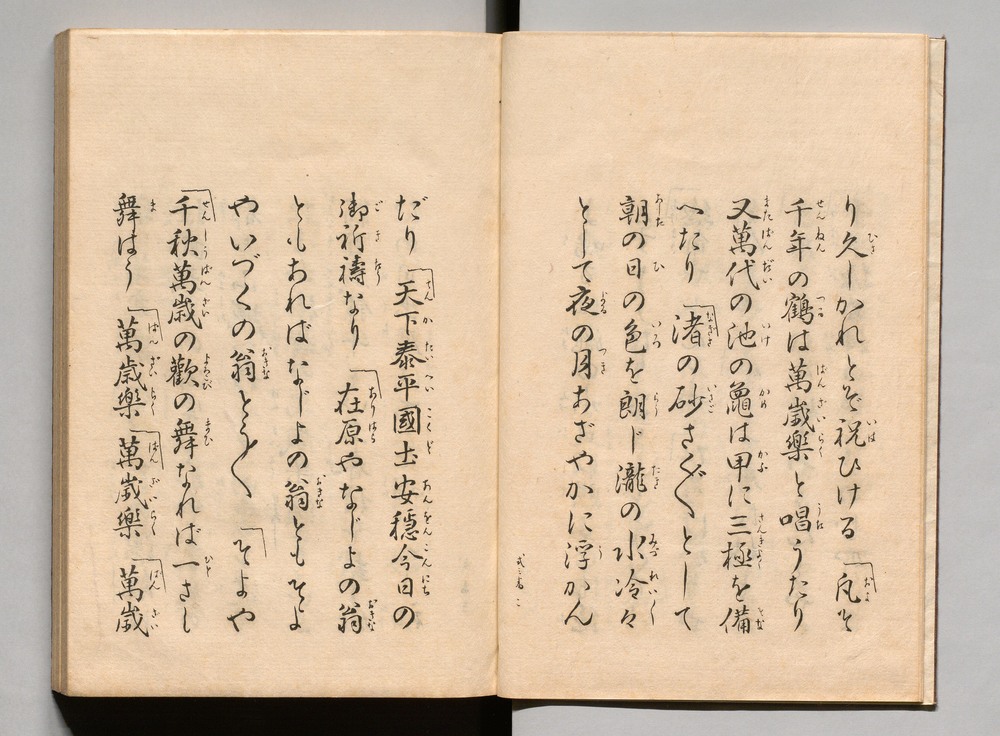 り久しかれとぞ祝ひける「凡そ
千年の鶴は萬歳樂と唱うたり
又萬代の池の龜は甲に三極を備
へたり「渚の砂さく〱として
朝の日の色を朗じ瀧の水冷々
として夜の月あざやかに浮かん
だり「天下泰平國土安穩今日の
御祈禱なり「在原やなじよの翁
ともあればなじよの翁ともそよ
やいづくの翁とう〱「そよや
「千秋萬歳の歡の舞なれば一さし
舞はう「萬歳樂「萬歳樂「萬歳